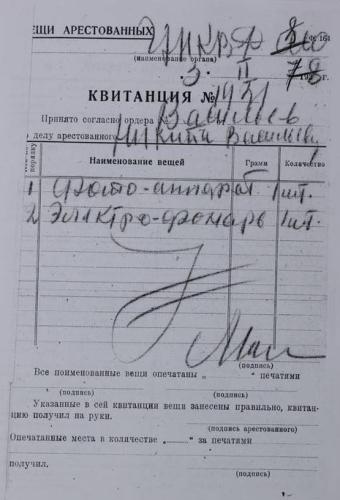 ВЕЩИ АРЕСТОВАННЫХ
(наименование органа)
3. II 78 г.
КВИТАНЦИЯ №
Принято согласно ордера № Васильев
делу арестованного Никита Васильеву
Наименование вещей Грамм Количество
1 Фото-аппарат 1 шт.
2 Электро-фонарь 1 шт.
(подпись)
Все поименованные вещи опечатаны „ “ печатями
(подпись) (подпись)
Указанные в сей квитанции вещи занесены правильно, квитан-
цию получил на руки.
(подпись арестованного)
Опечатанные места в количестве „ “ за печатями
получил.
(подпись)